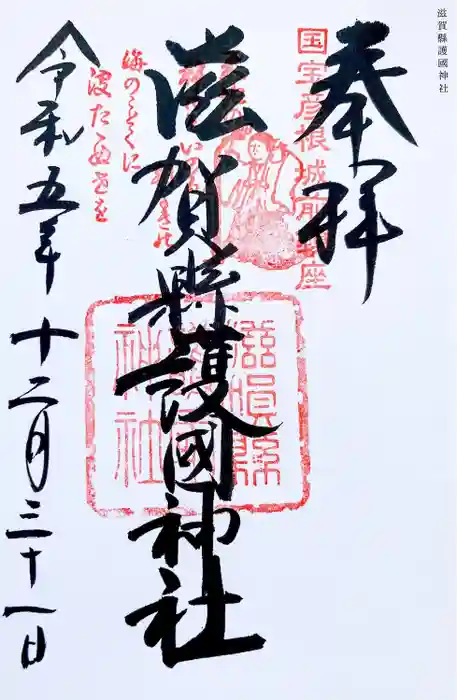 滋賀縣護國神社
奉拝
国宝彦根城前鎮座
滋賀縣護國神社
滋賀縣護國神社
海のことくに
波たゝぬ世を
令和五年十二月三十一日